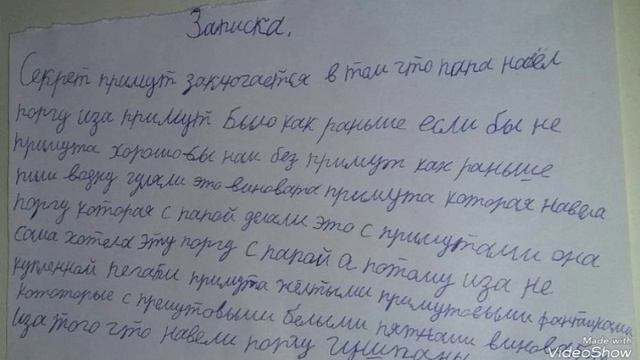 Записка.
Секрет примут заключается в том что папа навёл
поргу иза примут Было как раньше если бы не
примута хорошо-бы нам без примут как раньше
пили водку гуляли это виновата примута которая навела
поргу которая с папой делали это с примутами она
сама хотела эту поргу с папой а потому иза не
купленной печати примута жёлтыми примутовыми фантиками
кототорые с премутовыми белыми пятнами виноваты
иза того что навели поргу
Made with
VideoShow